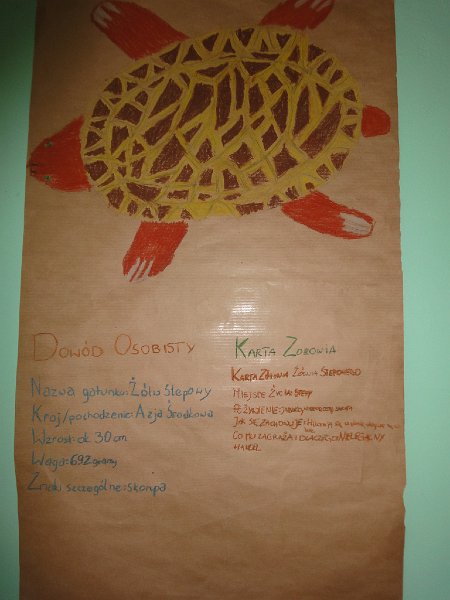 Dowód Osobisty
Nazwa gatunku: Żółw Stepowy
Kraj/pochodzenie: Azja Środkowa
Wzrost: ok 30cm
Waga: 692 gramy
Znaki szczególne: skorupa
Karta Zdrowia
Karta Zdrowia Żółwia Stepowego
Miejsce Życia: Stepy
Pożywienie:
Jak się zachowuje:
Co mu zagraża i dlaczego: Nielegalny
handel